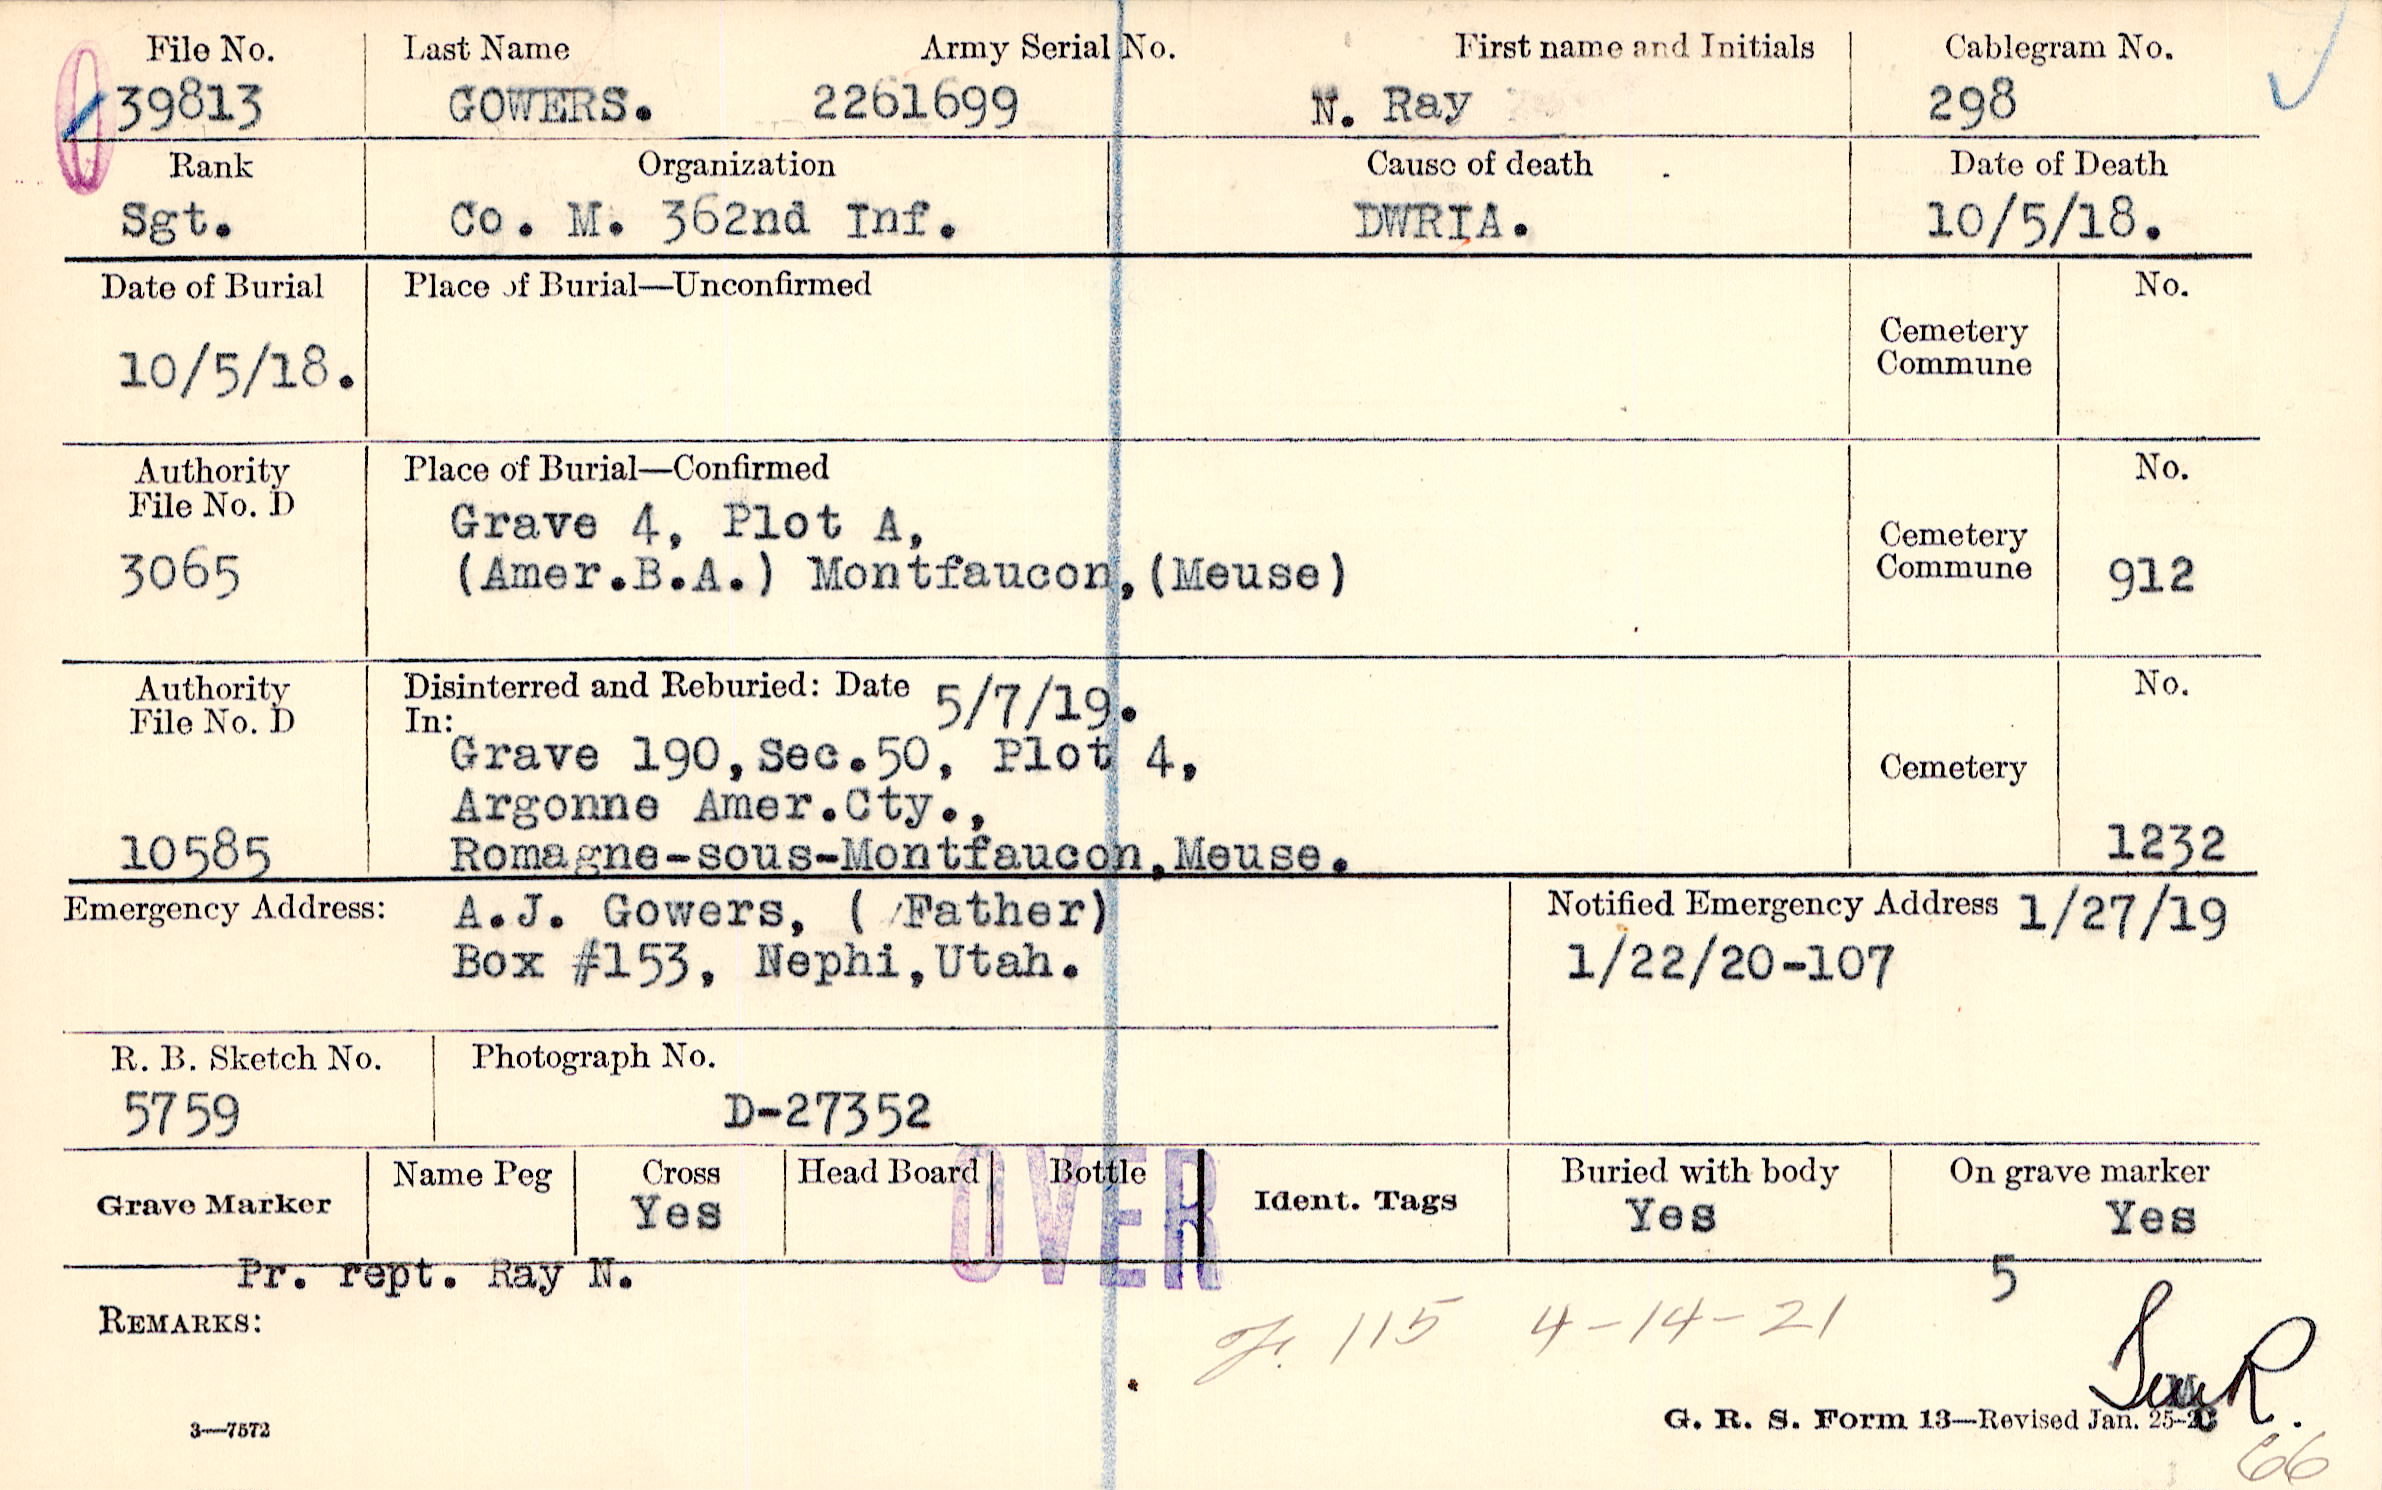 File No. Last Name Army Serial No. First name and Initials Cablegram No.
39813 GOWERS. 2261699 N. Ray 298
Rank Organization Cause of death Date of Death
Sgt. Co. M. 362nd Inf. DWRIA. 10/5/18.
Date of Burial Place of Burial—Unconfirmed No.
Cemetery
Commune
10/5/18.
Authority Place of Burial—Confirmed No.
File No. D
Grave 4, Plot A,
Cemetery
Commune
3065 (Amer.B.A.) Montfaucon,(Meuse) 912
Authority Disinterred and Reburied: Date 5/7/19. No.
File No. D In:
Grave 190,Sec.50, Plot 4,
Cemetery
Argonne Amer.Cty.,
10585 Romagne-sous-Montfaucon,Meuse. 1232
Emergency Address: A.J. Gowers, ( Father) Notified Emergency Address 1/27/19
Box #153, Nephi,Utah. 1/22/20-107
R. B. Sketch No. Photograph No.
5759 D-27352
Grave Marker Name Peg Cross Head Board Bottle Ident. Tags Buried with body On grave marker
Yes Yes Yes
OVER
Pr. rept. Ray N. 5
REMARKS:
115 4-14-21
3—7572 G. R. S. Form 13—Revised Jan. 25-
66